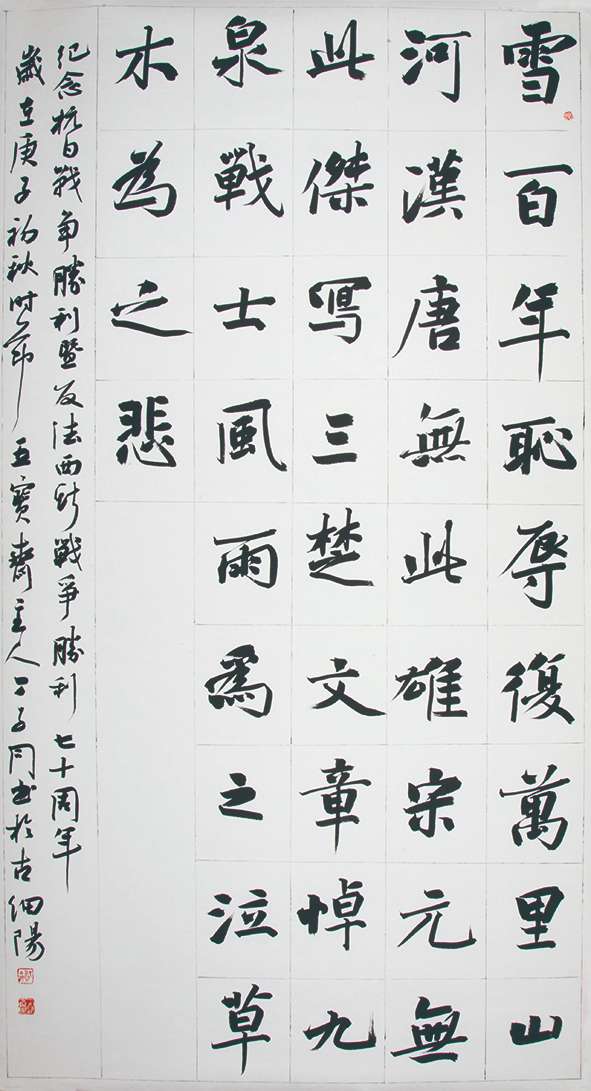 雪百年恥辱復萬里山
河漢唐無此雄宋元無
此傑寫三楚文章悼九
泉戰士風雨爲之泣草
木為之悲
纪念抗日戰争勝利暨反法西斯戰爭勝利七十周年
歲在庚子初秋时节五寶齋主人同书於古细陽